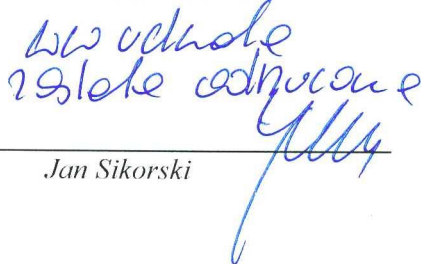 ww uchwała
została odrzucona
Jan Sikorski